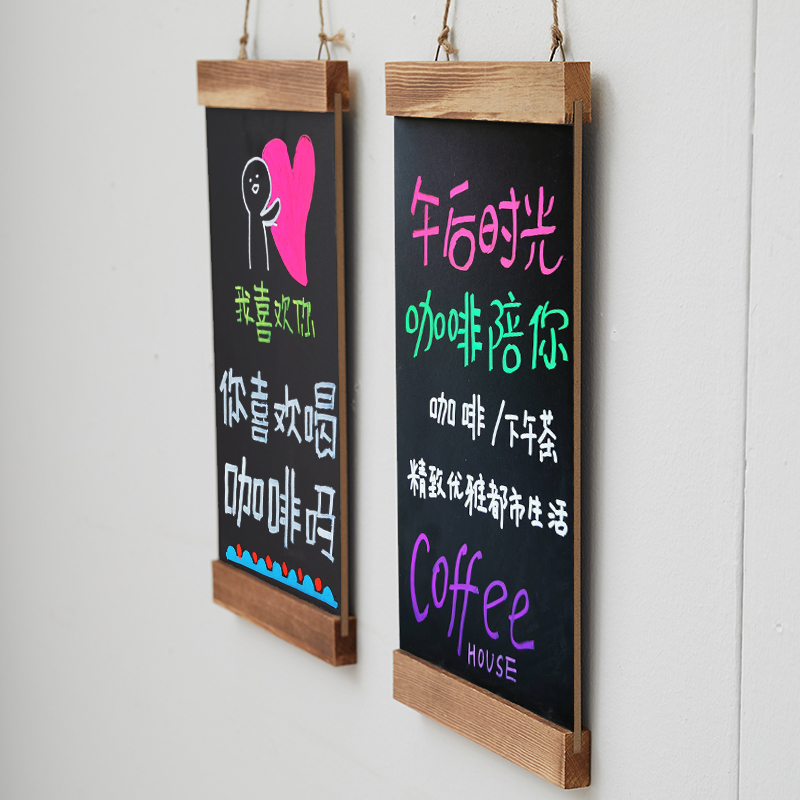 我喜欢你
你喜欢喝
咖啡吗
午后时光
咖啡陪你
咖啡/下午茶
精致优雅都市生活
Coffee
HOUSE